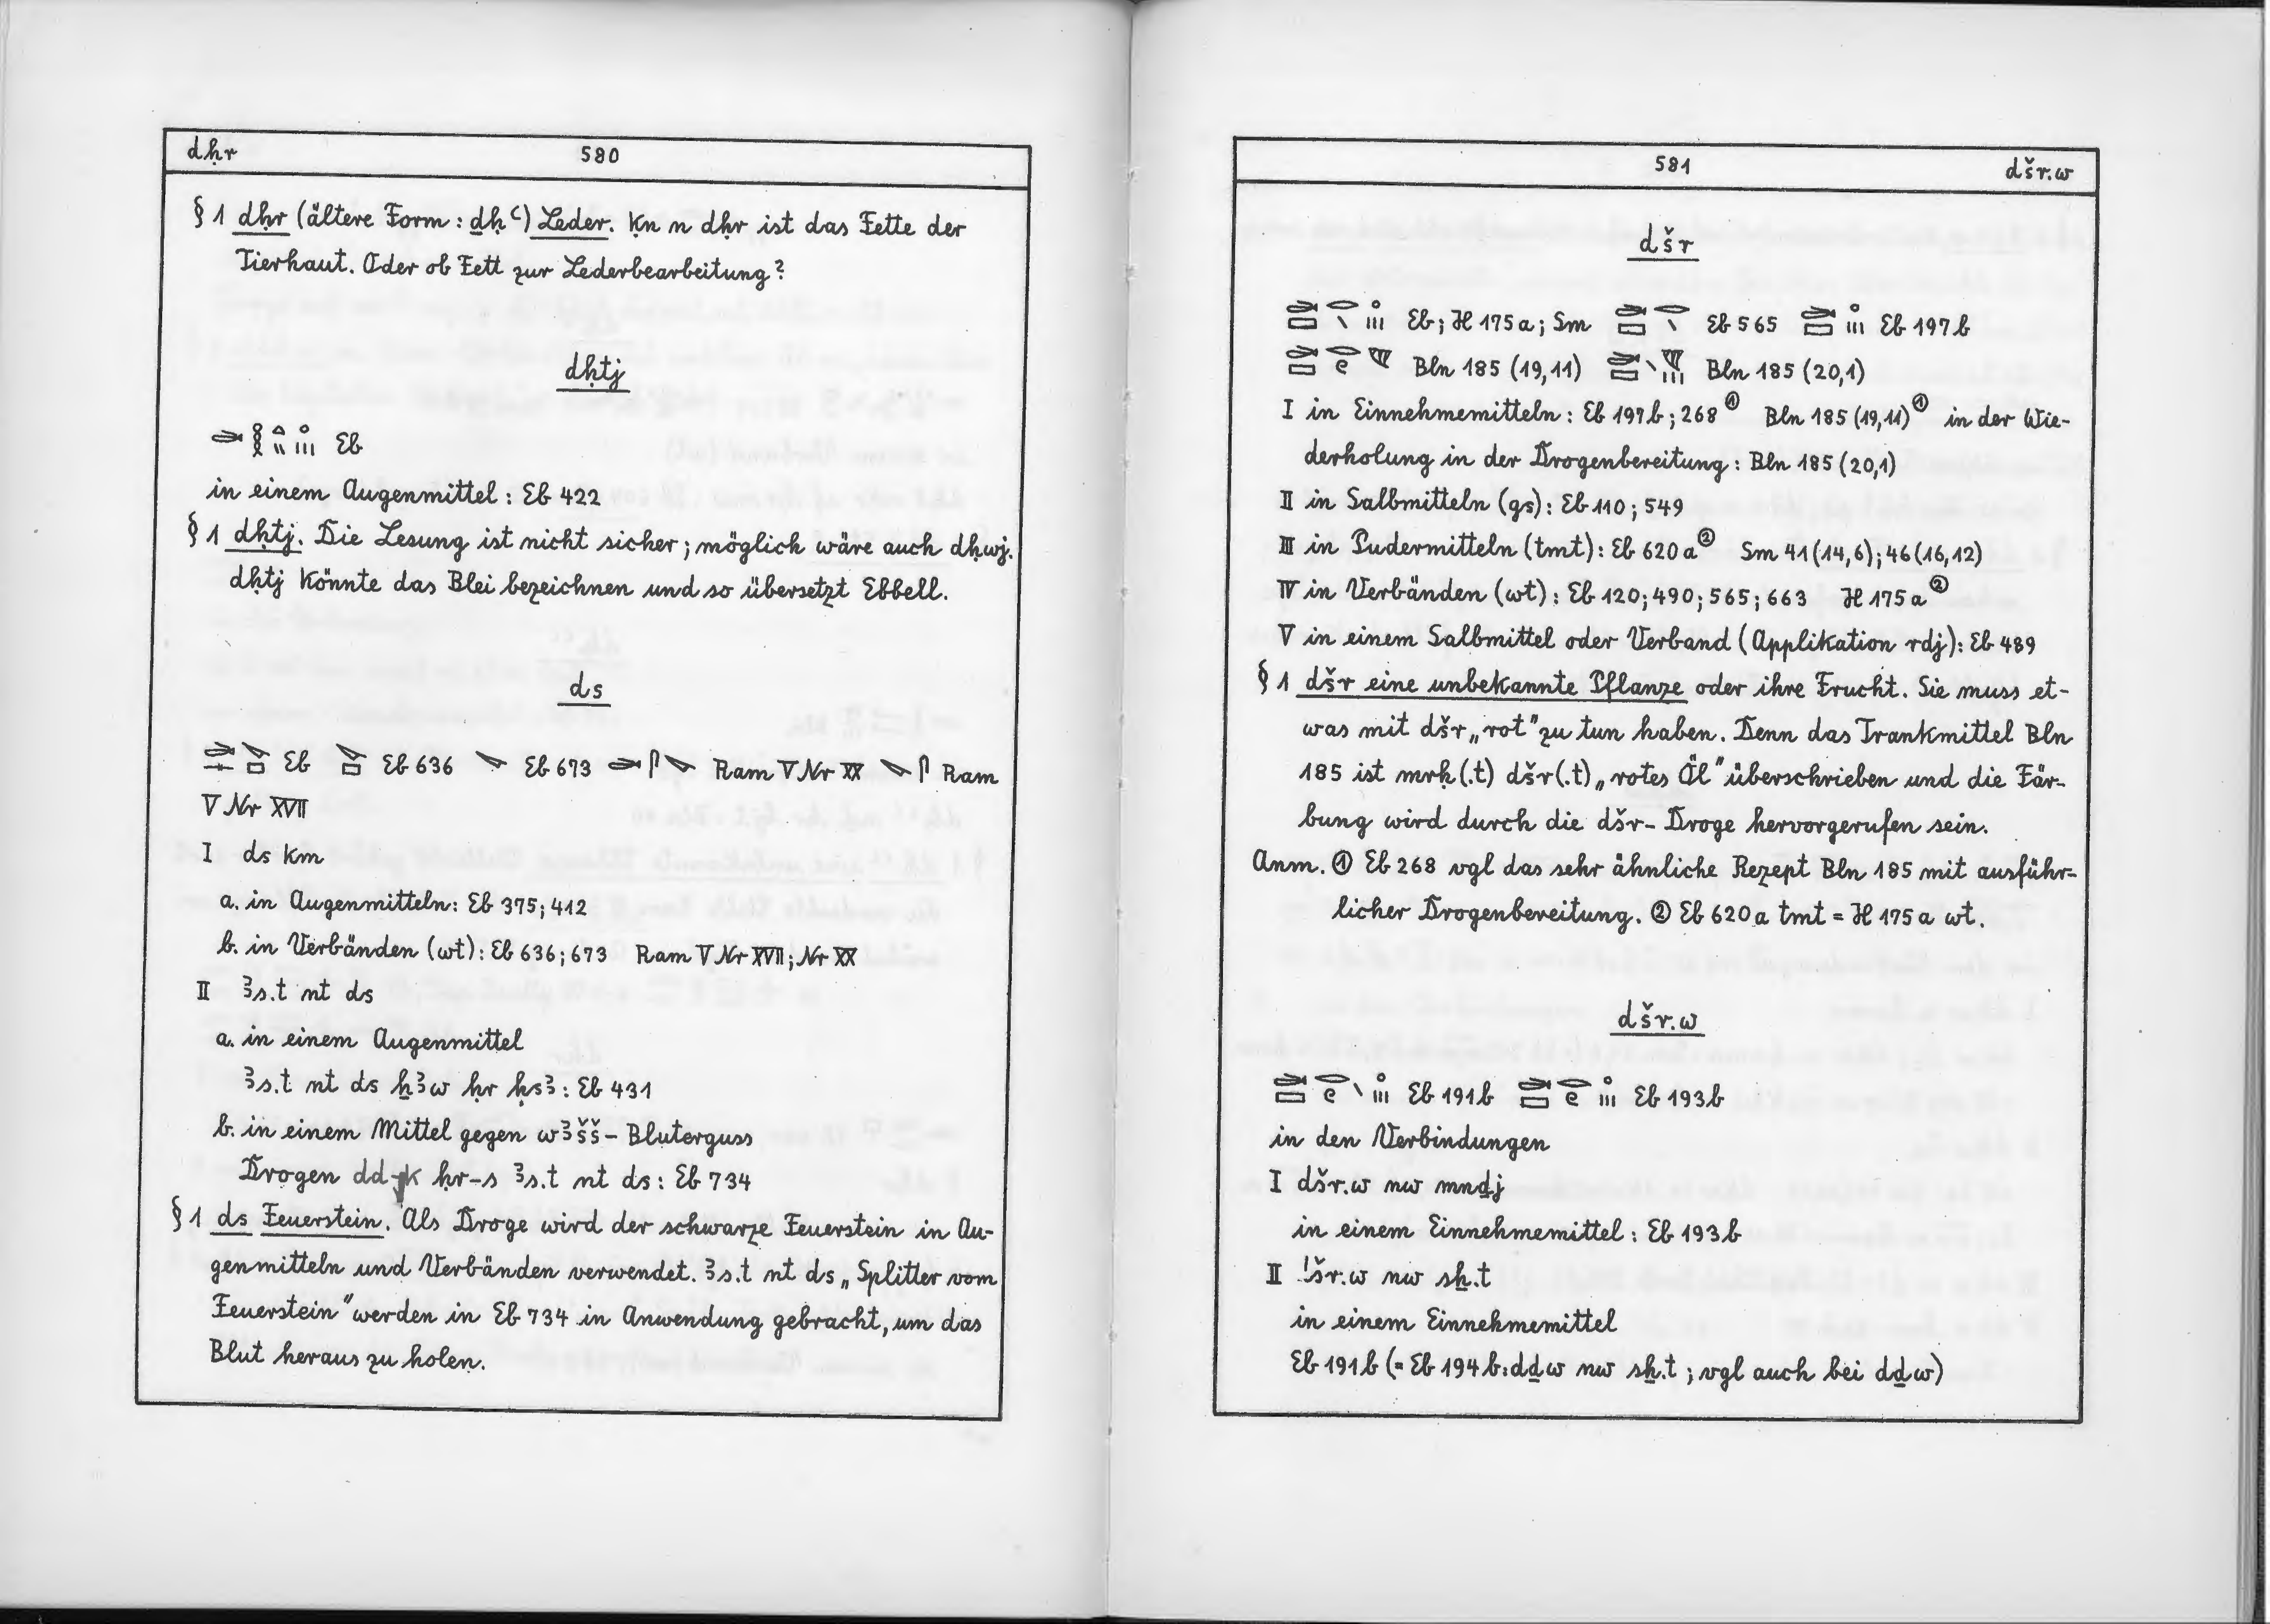 dḥr 580
§ 1 dḥr (ältere Form: ḏḥꜥ) Leder. Ḳn n dḥr ist das Fette der
Tierhaut. Oder ob Fett zur Lederbearbeitung?
dḥtj
Eb
in einem Augenmittel: Eb 422
§ 1 dḥtj. Die Lesung ist nicht sicher; möglich wäre auch dḥwj.
dḥtj könnte das Blei bezeichnen und so übersetzt Ebbell.
ds
Eb Eb 636 Eb 673 Ram V Nr XX Ram
V Nr XVII
I ds km
a. in Augenmitteln: Eb 375; 412
b. in Verbänden (wt): Eb 636; 673 Ram V Nr XVII; Nr XX
II ꜣs.t nt ds
a. in einem Augenmittel
ꜣs.t nt ds ẖꜣw ḥr ḥsꜣ: Eb 431
b. in einem Mittel gegen wꜣšš-Bluterguss
Drogen dd-k ḥr-s ꜣs.t nt ds: Eb 734
§ 1 ds Feuerstein. Als Droge wird der schwarze Feuerstein in Au-
genmitteln und Verbänden verwendet. ꜣs.t nt ds „Splitter vom
Feuerstein" werden in Eb 734 in Anwendung gebracht, um das
Blut heraus zu holen.
581 dšr.w
dšr
Eb; H 175a; Sm Eb 565 Eb 197b
Bln 185 (19,11) Bln 185 (20,1)
I in Einnehmemitteln: Eb 197b; 268① Bln 185 (19,11)① in der Wie-
derholung in der Drogenbereitung: Bln 185 (20,1)
II in Salbmitteln (gs): Eb 110; 549
III in Pudermitteln (tmt): Eb 620a② Sm 41 (14,6); 46 (16,12)
IV in Verbänden (wt): Eb 120; 490; 565; 663 H 175a②
V in einem Salbmittel oder Verband (Applikation rdj): Eb 489
§ 1 dšr eine unbekannte Pflanze oder ihre Frucht. Sie muss et-
was mit dšr „rot" zu tun haben. Denn das Trankmittel Bln
185 ist mrḥ(.t) dšr(.t) „rotes Öl" überschrieben und die Fär-
bung wird durch die dšr-Droge hervorgerufen sein.
Anm. ① Eb 268 vgl das sehr ähnliche Rezept Bln 185 mit ausführ-
licher Drogenbereitung. ② Eb 620a tmt = H 175a wt.
dšr.w
Eb 191b Eb 193b
in den Verbindungen
I dšr.w nw mnḏj
in einem Einnehmemittel: Eb 193b
II !šr.w nw sẖ.t
in einem Einnehmemittel
Eb 191b (= Eb 194b: dḏw nw sẖ.t; vgl auch bei dḏw)